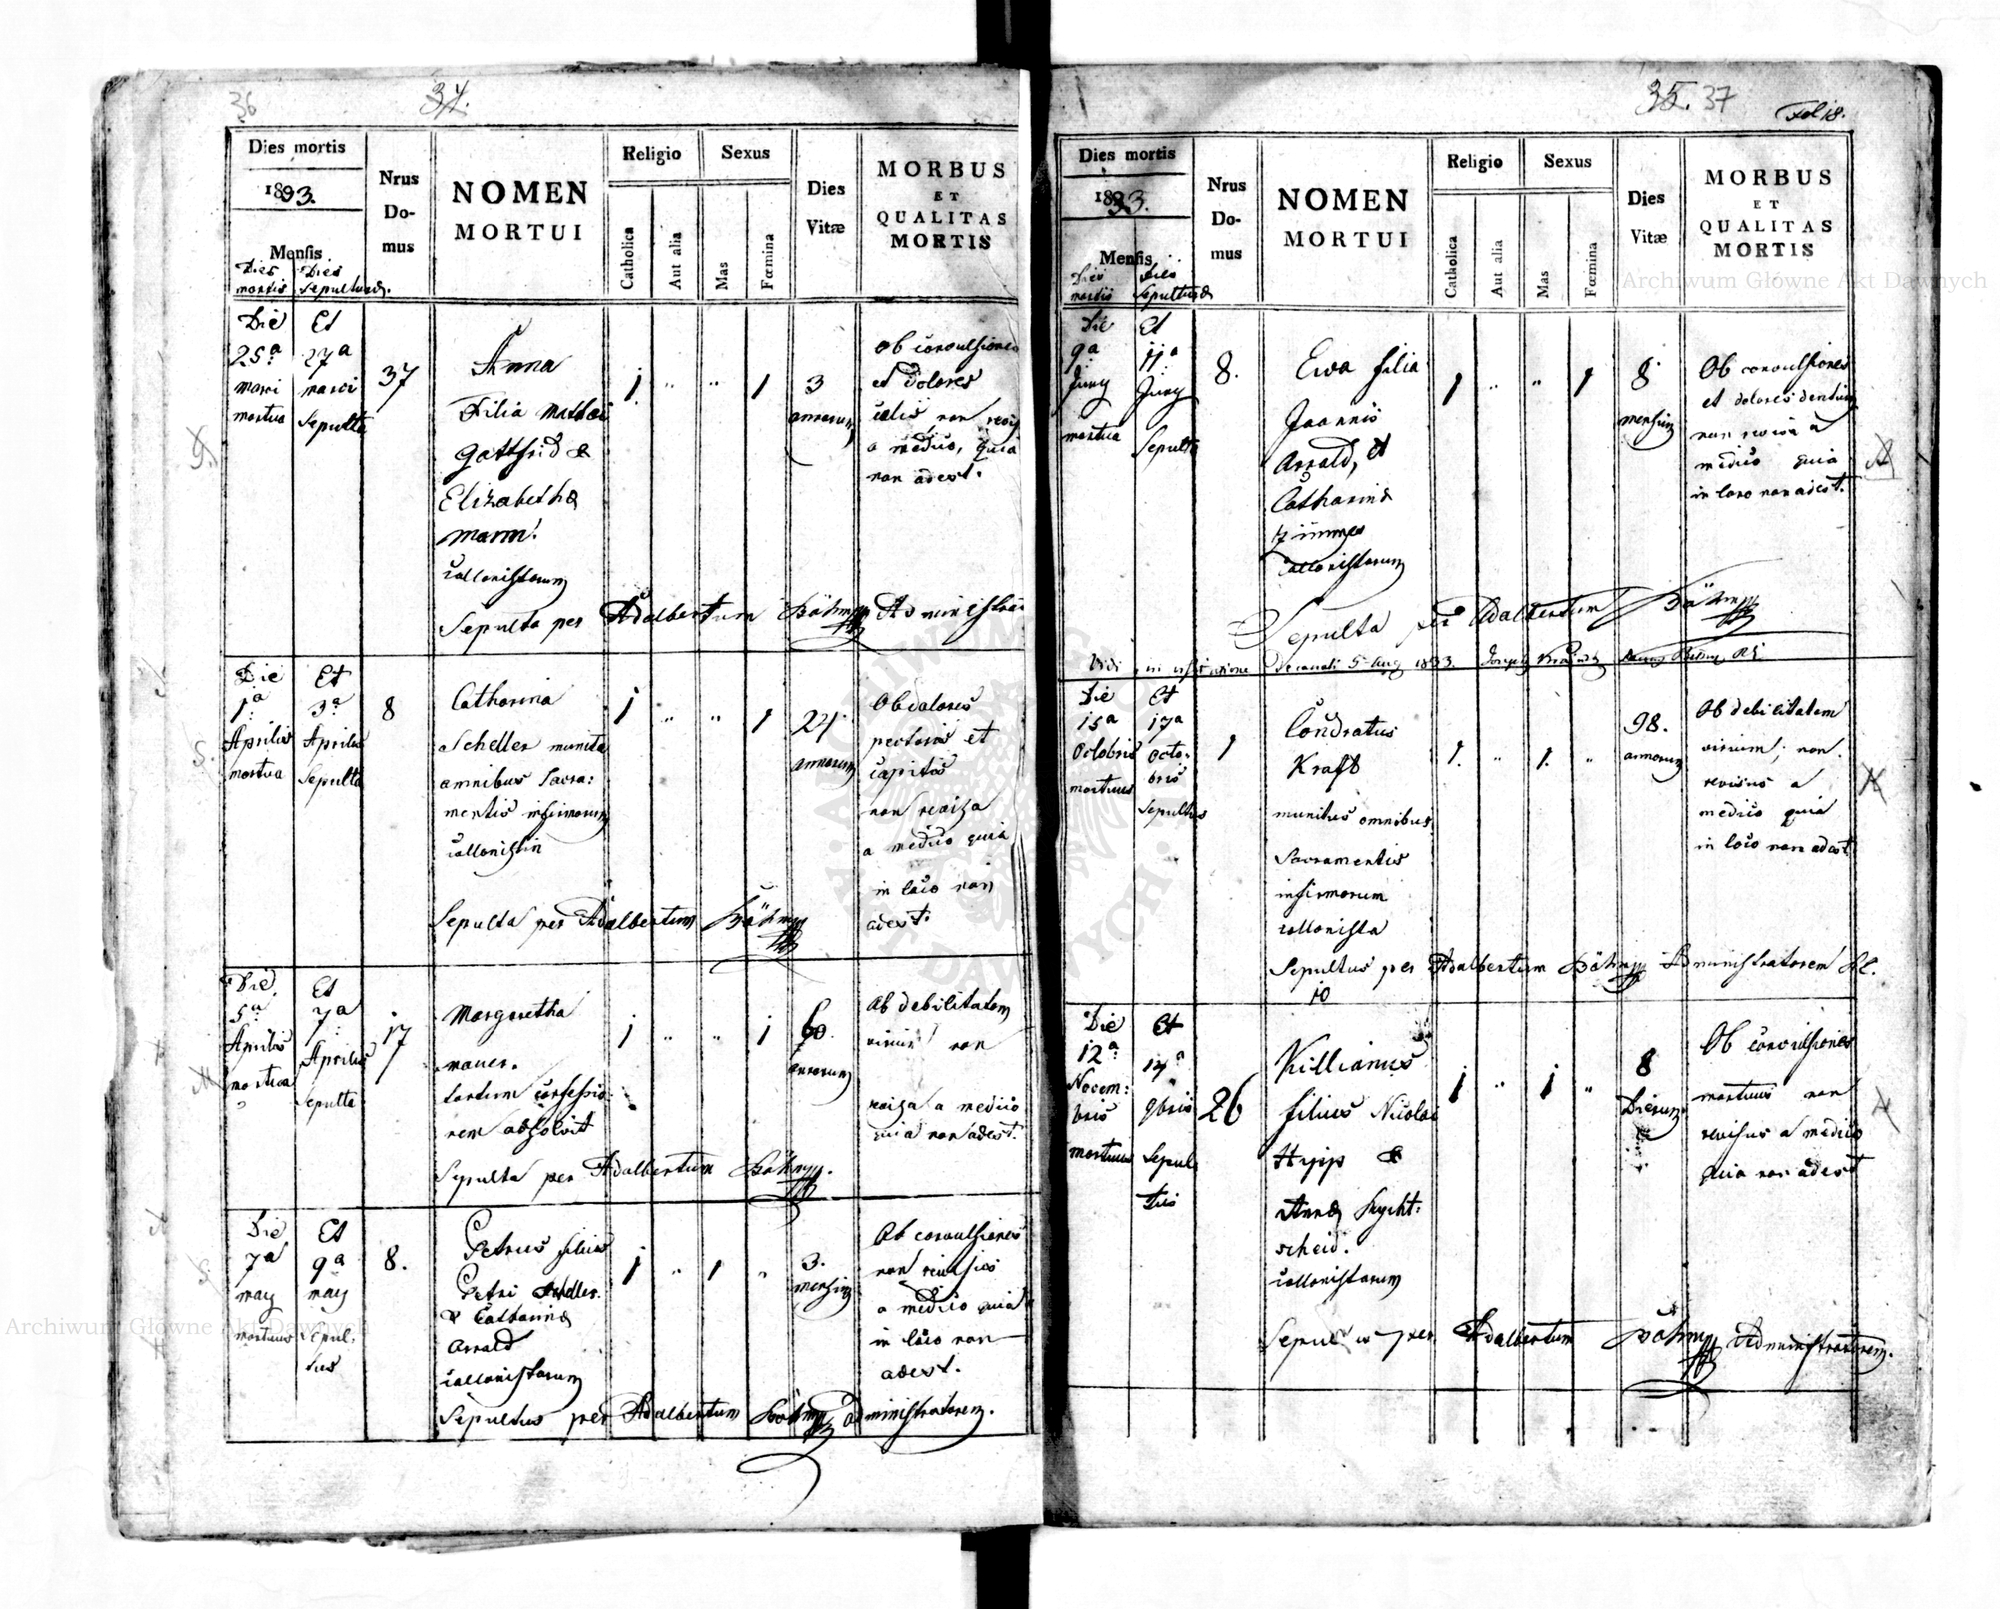 36
34.
Dies mortis
1833.
Mensis
Dies mortis
Dies Sepulturæ.
Nrus Do- mus
NOMEN
MORTUI
Religio
Catholica
Aut alia
Sexus
Mas
Fœmina
Dies
Vitæ
MORBUS
ET
QUALITAS
MORTIS
Die 25ª marci mortua
Et 27ª marci Sepulta
37
Anna
Filia Mathæi
Gottfrid &
Elizabethæ
Mann.
collonistarum
1 " " 1
3
annorum
Ob convulsiones
et dolores
colis, non revis
a medico, quia
non adest.
Sepulta per Adalbertum Böhm Administra
Die 1ª Aprilis mortua
Et 3ª Aprilis Sepulta
8
Catharina
Scheller munita
omnibus Sacra:
mentis infirmorum
collonistin
1 " " 1
24
annorum
Ob dolores
pectoris et
capitis
non revisa
a medico quia
in loco non
adest.
Sepulta per Adalbertum Böhm
Die 5ª Aprilis mortua
Et 7ª Aprilis Sepulta
17
Margaretha
Mauer.
tantum confessio:
nem absolvit
1 " " 1
60.
annorum
Ob debilitatem
virium non
revisa a medico
quia non adest.
Sepulta per Adalbertum Böhm.
Die 7ª may mortuus
Et 9ª may Sepul. tus
8.
Petrus filius
Petri Scheller.
& Catharinæ
Arnold
collonistarum
1 " 1 "
3.
mensium
Ob convulsiones
non revisus
a medico quia
in loco non
adest.
Sepultus per Adalbertum Böhm administratorem.
35. 37
Fol 18.
Dies mortis
1833.
Mensis
Dies mortis
Dies Sepulturæ
Nrus Do- mus
NOMEN
MORTUI
Religio
Catholica
Aut alia
Sexus
Mas
Fœmina
Dies
Vitæ
MORBUS
ET
QUALITAS
MORTIS
Die 9ª Juny mortua
Et 11ª Juny Sepulta
8.
Ewa filia
Joannis
Arnold, et
Catharinæ
Zimmer
collonistarum
1 " " 1
8
mensium
Ob convulsiones
et dolores dentium
non revisa a
medico quia
in loco non adest.
Sepulta per Adalbertum Böhm
Vidi in visitatione Decanali 5 Aug 1833.
Die 15ª Octobris mortuus
Et 17ª Octo- bris Sepultus
1
Condratus
Kraft
munitus omnibus
Sacramentis
infirmorum
collonista
1. " 1. "
98.
annorum
Ob debilitatem
virium, non
revisus a
medico quia
in loco non adest
Sepultus per Adalbertum Böhm Administratorem
10
Die 12ª Novem: bris mortuus
Et 14ª 9bris Sepul tus
26
Killianus
filius Nicolai
Hipp &
Annæ
scheid.
collonistarum
1 " 1 "
8
Dierum
Ob convulsiones
mortuus non
revisus a medico
quia non adest
per Adalbertum Böhm Administratorem.
Archiwum Główne Akt Dawnych
Archiwum Główne Akt Dawnych